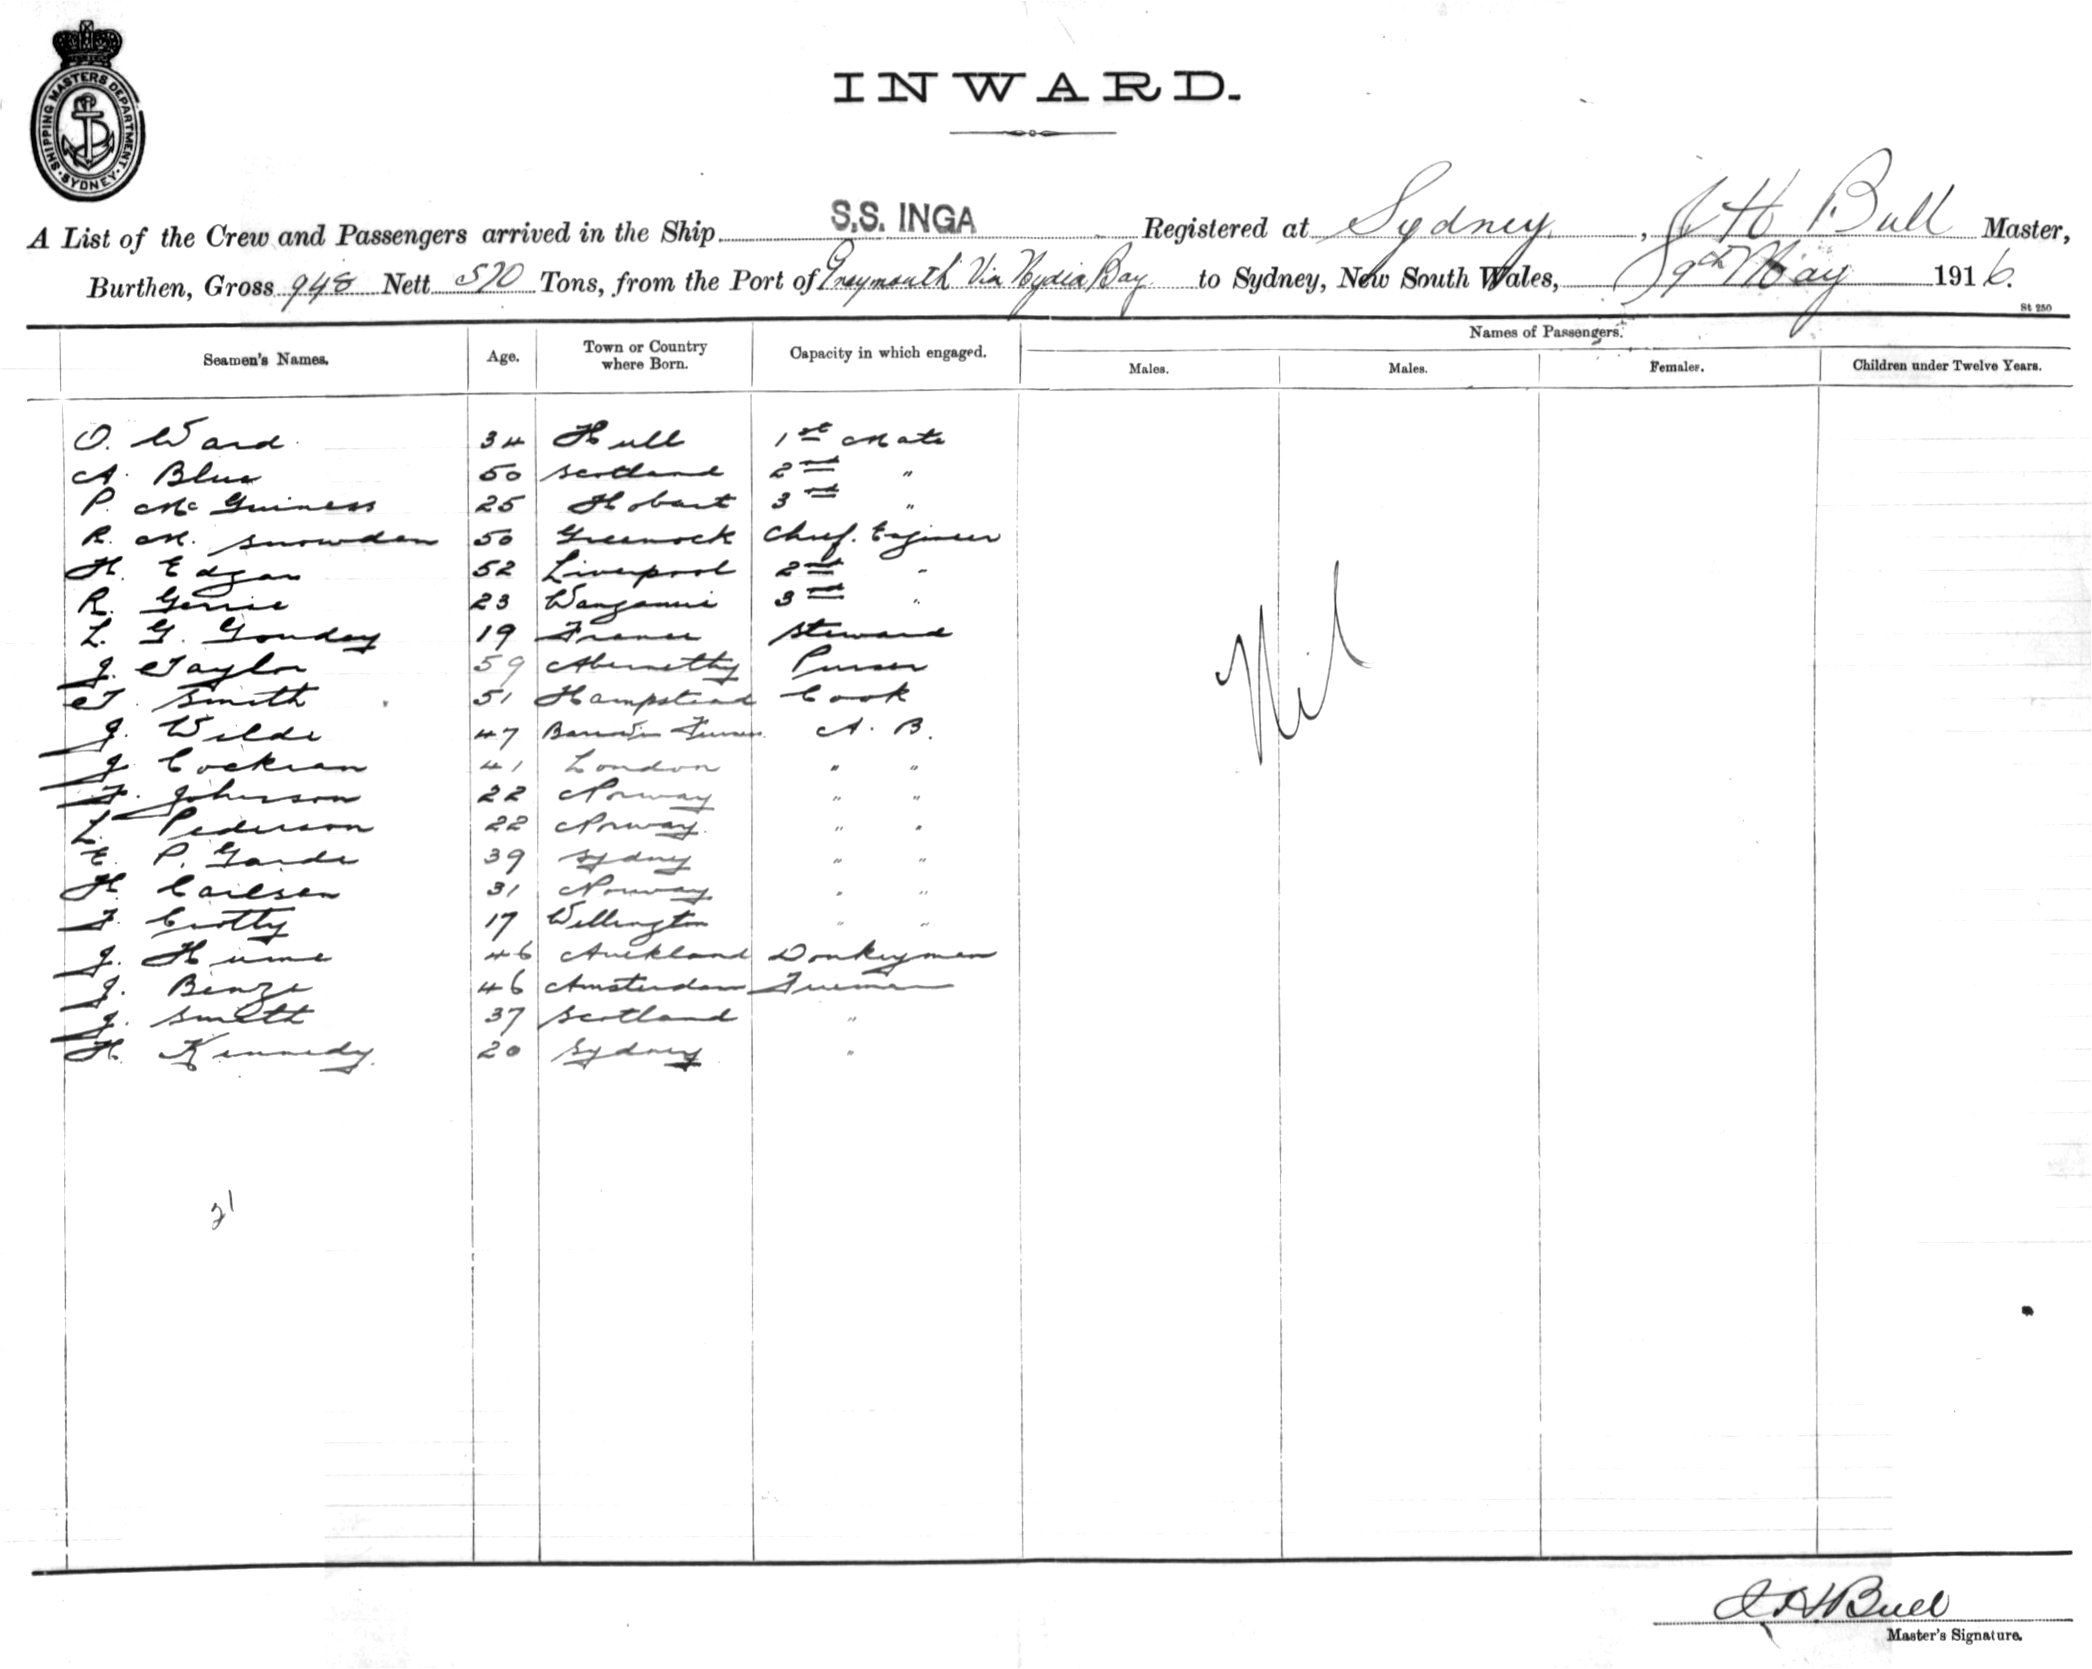 SHIPPING MASTERS DEPARTMENT. SYDNEY
INWARD.
A List of the Crew and Passengers arrived in the Ship S.S. INGA Registered at Sydney, J H Bull Master,
Burthen, Gross 948 Nett 570 Tons, from the Port of Greymouth Via Nydia Bay to Sydney, New South Wales, 9th May 1916.
St 250
Seamen's Names. Age. Town or Country where Born. Capacity in which engaged. Names of Passengers.
Males. Males. Females. Children under Twelve Years.
O. Ward 34 Hull 1st Mate
A. Blue 50 Scotland 2nd "
P. McGuiness 25 Hobart 3rd "
R. M. Snowden 50 Greenock Chief. Engineer
H. Edgar 52 Liverpool 2nd "
R. Gerrie 23 Wanganui 3rd "
L. G. Gouday 19 France Steward
J. Taylor 59 Abernethy Purser
T. Smith 51 Hampstead Cook
J. Wilde 47 A. B.
J. Cockran 41 London " "
F. Johnson 22 Norway " "
L. Pederson 22 Norway. " "
E. P. Garde 39 Sydney " "
H. Carlsen 31 Norway " "
F. Crotty 17 Wellington " "
J. Hume 46 Auckland Donkeyman
J. 46 Amsterdam Fireman
J. Smith 37 Scotland "
H. Kennedy. 20 Sydney "
Nil
21
J H Bull
Master's Signature.